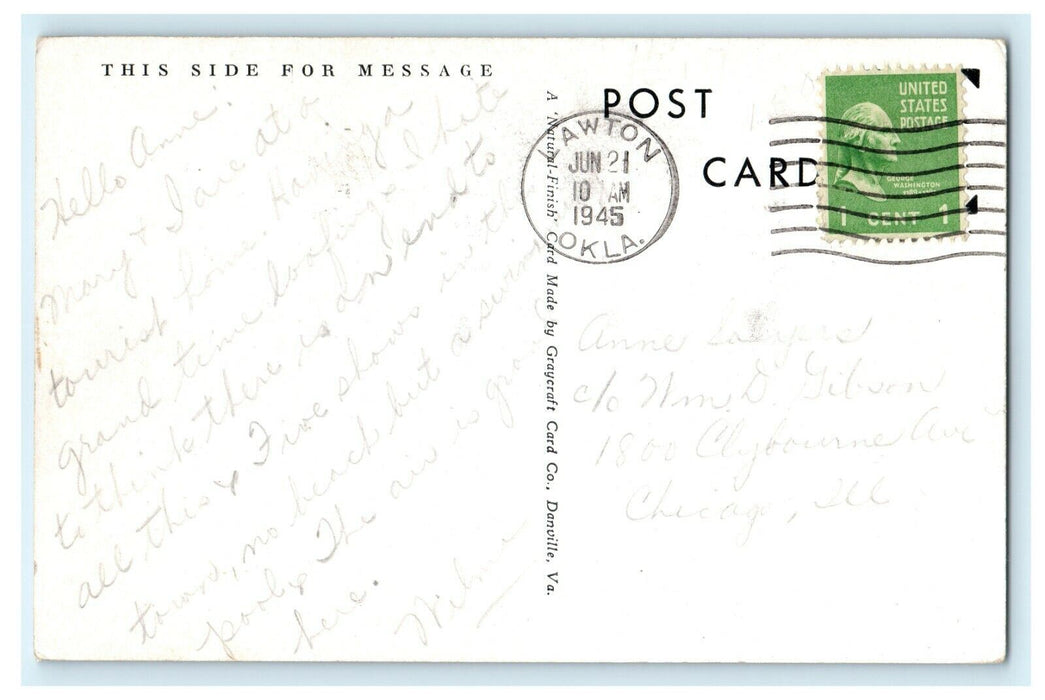 THIS SIDE FOR MESSAGE
Hello Anne:
Mary & I are at a
tourist home. Having a
grand time loafing & I hate
to think there is an end to
all this & Five shows in the
town, no beach but a swim
pool & The air is grand
here.
Wilma
A 'Natural-Finish' Card Made by Graycraft Card Co., Danville, Va.
POST
CARD
LAWTON
JUN 21
10 AM
1945
OKLA.
UNITED
STATES
POSTAGE
GEORGE
WASHINGTON
1 CENT 1
Anne
c/o Wm. D. Gibson
1800 Clybourne Ave
Chicago, Ill